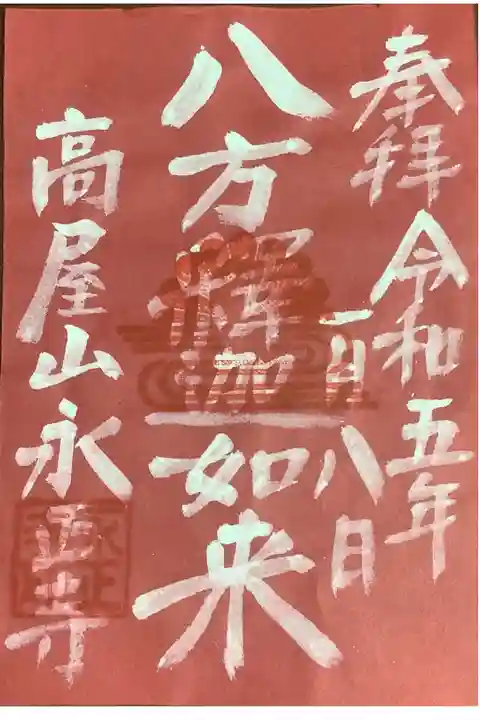 奉拝 令和五年
一月八日
八方釋迦如来
高屋山永正寺